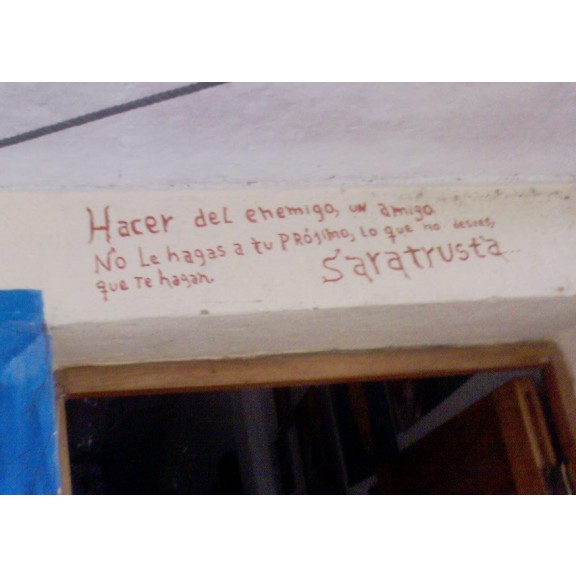 Hacer del enemigo, un amigo
No Le hagas a tu PRójimo, Lo que no desees,
que Te hagan.
Saratrusta